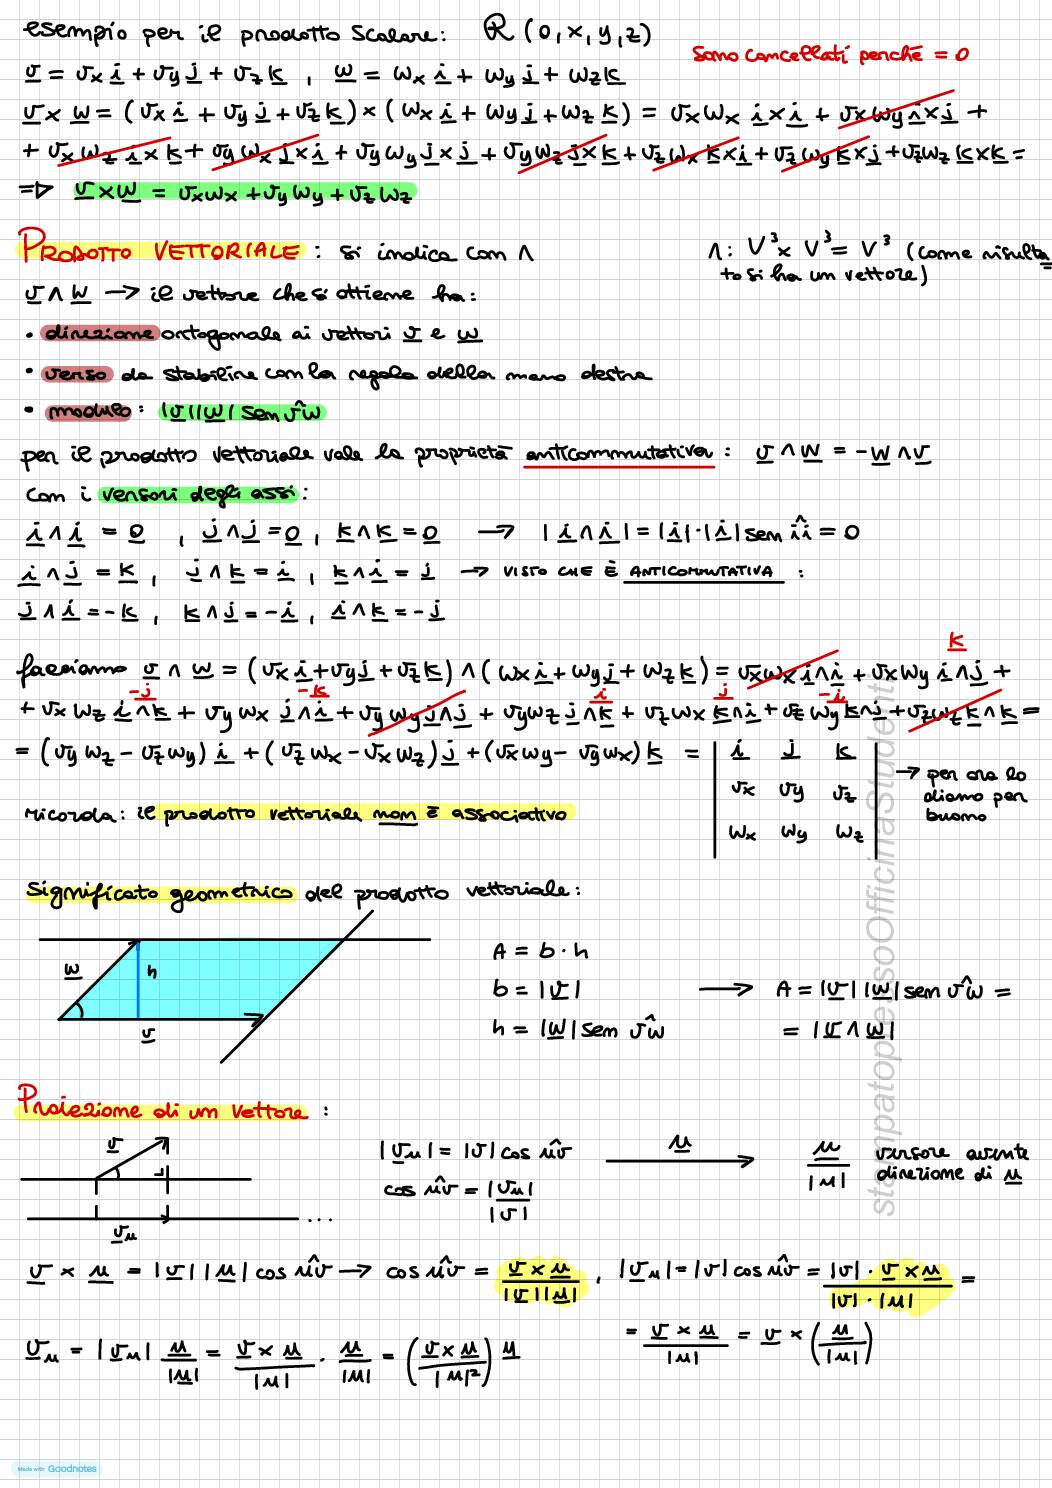 esempio per il prodotto scalare: R (0, x, y, z)
sono cancellati perché = 0
v = vx i + vy j + vz k , w = wx i + wy j + wz k
v x w = (vx i + vy j + vz k) x (wx i + wy j + wz k) = vx wx i x i + vx wy i x j +
+ vx wz i x k + vy wx j x i + vy wy j x j + vy wz j x k + vz wx k x i + vz wy k x j + vz wz k x k =
=> v x w = vx wx + vy wy + vz wz
PRODOTTO VETTORIALE : si indica con ∧
∧: V³ x V³ = V³ (come risulta
to si ha un vettore)
v ∧ w → il vettore che si ottiene ha:
• direzione ortogonale ai vettori v e w
• verso da stabilire con la regola della mano destra
• modulo: |v||w| sen v̂w
per il prodotto vettoriale vale la proprietà anticommutativa: v ∧ w = -w ∧ v
con i versori degli assi:
i ∧ i = 0 , j ∧ j = 0 , k ∧ k = 0 → |i ∧ i| = |i|·|i| sen îi = 0
i ∧ j = k , j ∧ k = i , k ∧ i = j → VISTO CHE È ANTICOMMUTATIVA :
j ∧ i = -k , k ∧ j = -i , i ∧ k = -j
k
facciamo v ∧ w = (vx i + vy j + vz k) ∧ (wx i + wy j + wz k) = vx wx i ∧ i + vx wy i ∧ j +
-j -k i j -i
+ vx wz i ∧ k + vy wx j ∧ i + vy wy j ∧ j + vy wz j ∧ k + vz wx k ∧ i + vz wy k ∧ j + vz wz k ∧ k =
= (vy wz - vz wy) i + (vz wx - vx wz) j + (vx wy - vy wx) k = | i j k |
vx vy vz
wx wy wz
→ per ora lo
diamo per
buono
ricorda: il prodotto vettoriale non è associativo
significato geometrico del prodotto vettoriale:
w
h
v
A = b · h
b = |v|
h = |w| sen v̂w
→ A = |v| |w| sen v̂w =
= |v ∧ w|
Proiezione di un vettore :
v
vu
...
|vu| = |v| cos ûv
cos ûv = |vu| / |v|
u
u / |u|
versore avente
direzione di u
v x u = |v| |u| cos ûv → cos ûv = v x u / |v||u| , |vu| = |v| cos ûv = |v| · v x u / |v| · |u| =
= v x u / |u| = v x (u / |u|)
vu = |vu| u / |u| = v x u / |u| · u / |u| = (v x u / |u|²) u
stampatopressoOfficinaStudenti
Made with Goodnotes